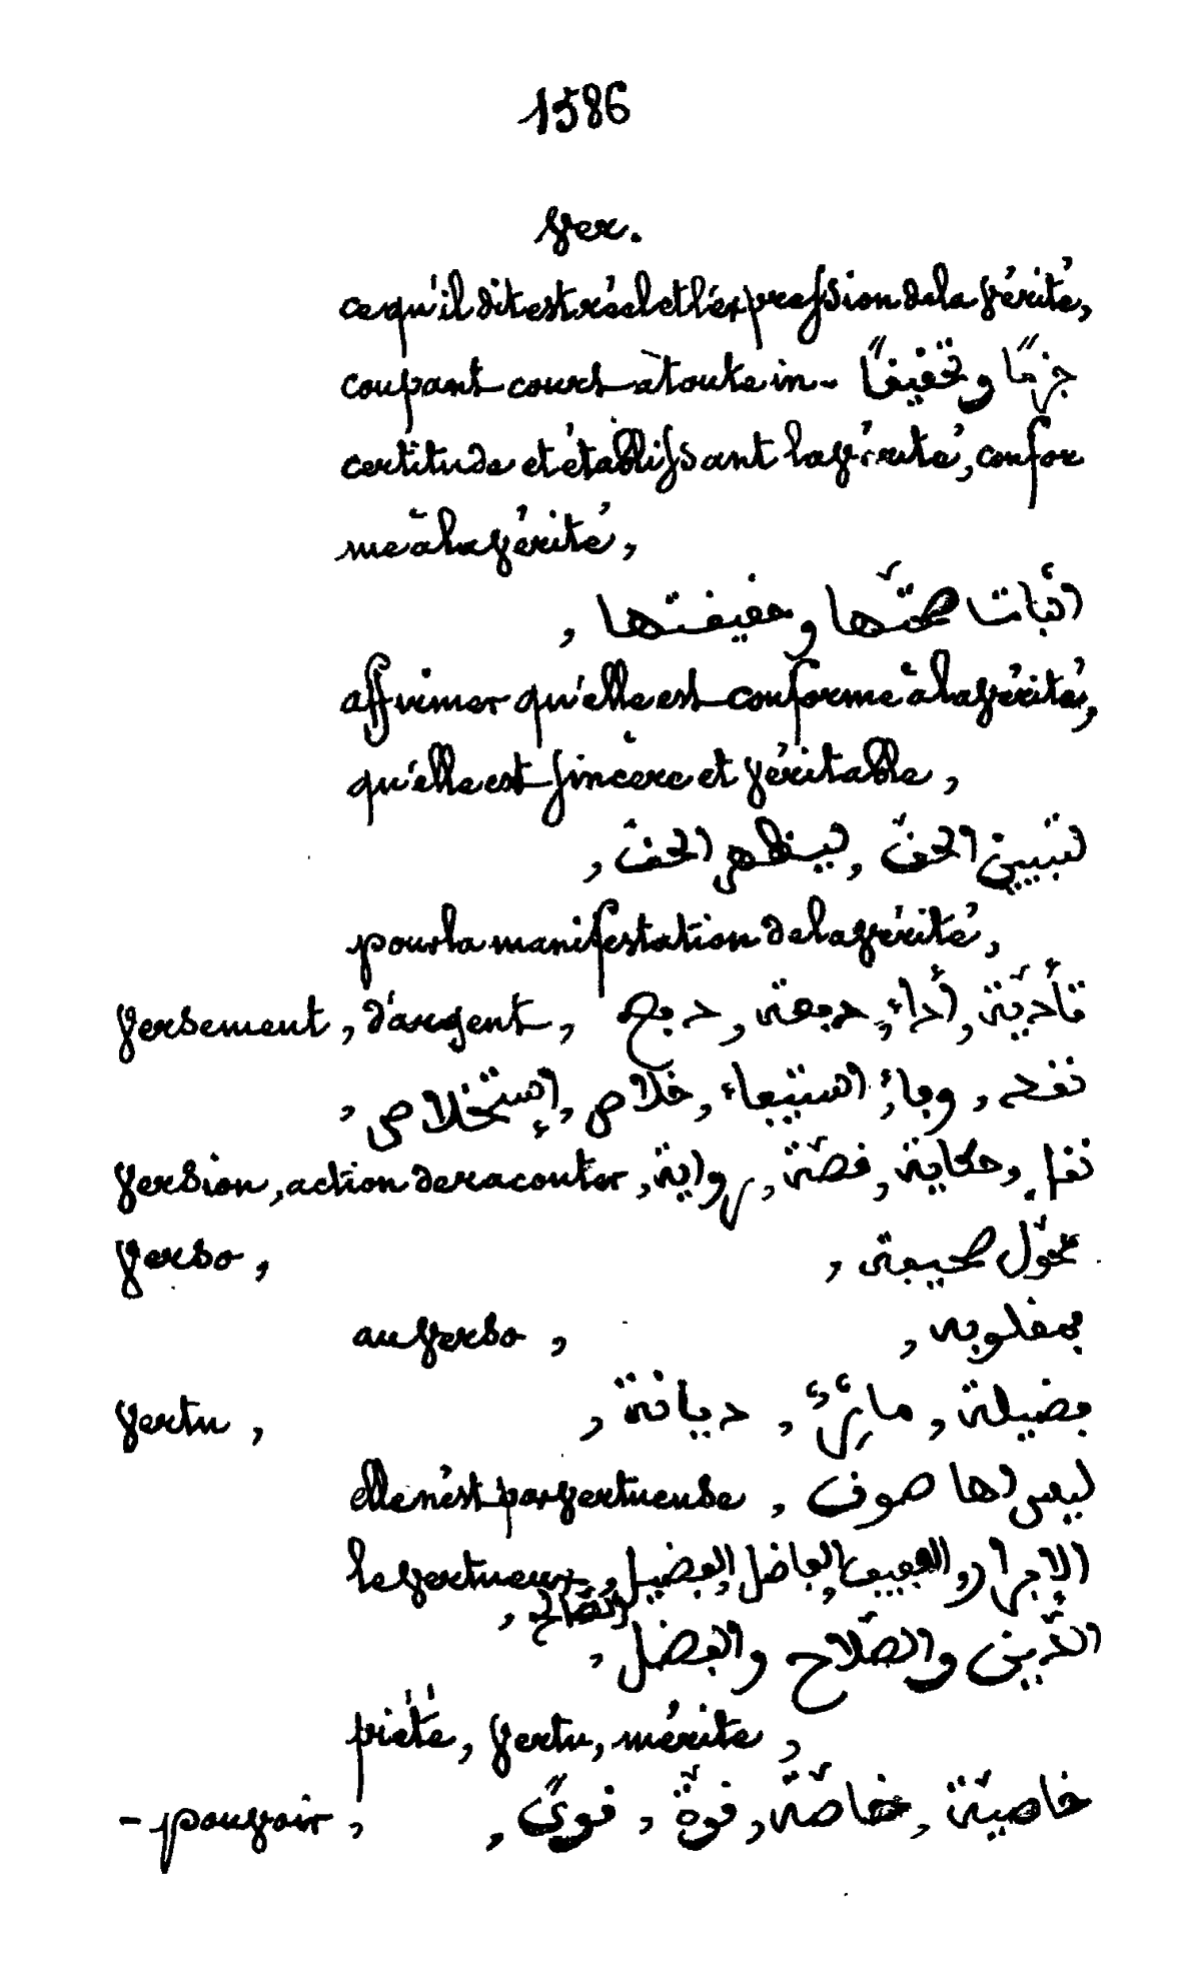 1586
Ver.
ce qu'il dit est réel et l'expression de la vérité,
coupant court à toute in- جزمًا وتحقيقًا
certitude et établissant la vérité, confor
me à la vérité,
اثبات صحّتها وحقيقتها ,
affirmer qu'elle est conforme à la vérité,
qu'elle est sincère et véritable,
لتبيين الحقّ , ليظهر الحقّ ,
pour la manifestation de la vérité,
versement, d'argent, تأديّة, أداء, دفعة, دفع
نقد, وفاء, استيفاء, خلاص, إستخلاص,
version, action de raconter, نقل, حكاية, قصّة, رواية,
verso, محوّل صحيفة,
au verso, بمقلوبه,
vertu, فضيلة, , ديانة,
elle n'est pas vertueuse, ليس لها صون
le vertueux, العفيف, الفاضل, الفضيل,
الصّالح,
الدّين والصّلاح والفضل,
piété, vertu, mérite,
- pouvoir, خاصيّة, خاصّة, قوّة, قوىً,